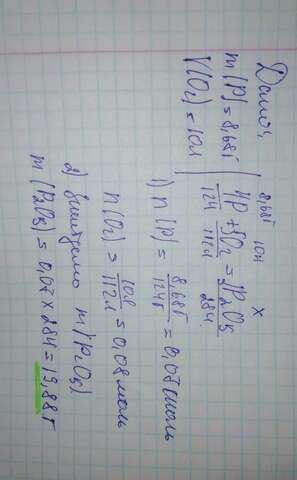 Дано:
m(P)=8,68г
V(O₂)=10л
8,68г 10л x
4P + 5O₂ = 2P₂O₅
124 112л 284
1) n(P) = 8,68г / 124г = 0,07 моль
n(O₂) = 10л / 112л = 0,08 моль
m(P₂O₅)
m(P₂O₅) = 0,07 × 284 = 19,88г